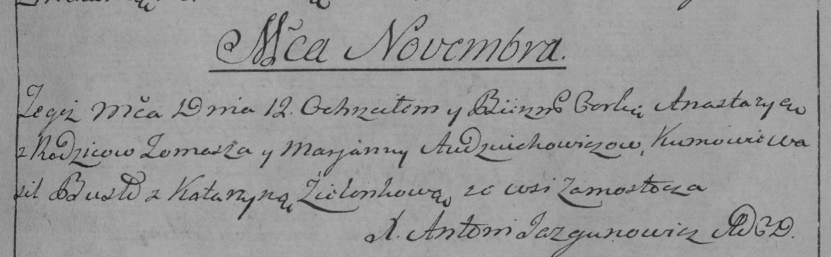 Mca Novembra.
Tegoż Mca Dnia 12. Ochrzciłem y Bierzmo Corkę Anastazyą
z Rodzicow Tomasza y Maryanny Audziuchowiczow, Kumowie Wa
sil Busło z Katarzyną Zielonkową ze wsi Zamostocza
X. Antoni Jazgunowicz